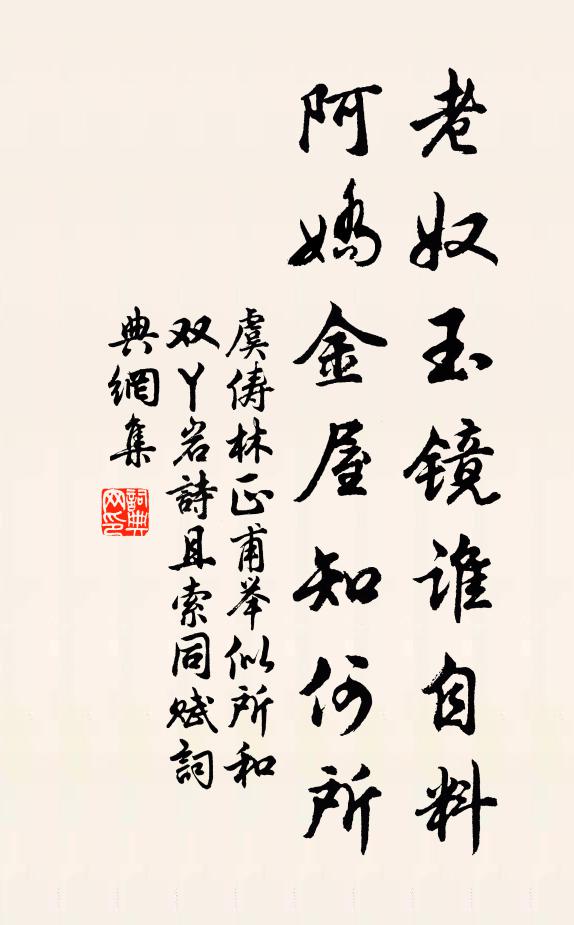 老奴玉镜谁自料
阿嬌金屋知何所
虞俦林正甫举似所和
双丫岩詩且索同赋詞
典網集
詞典網印